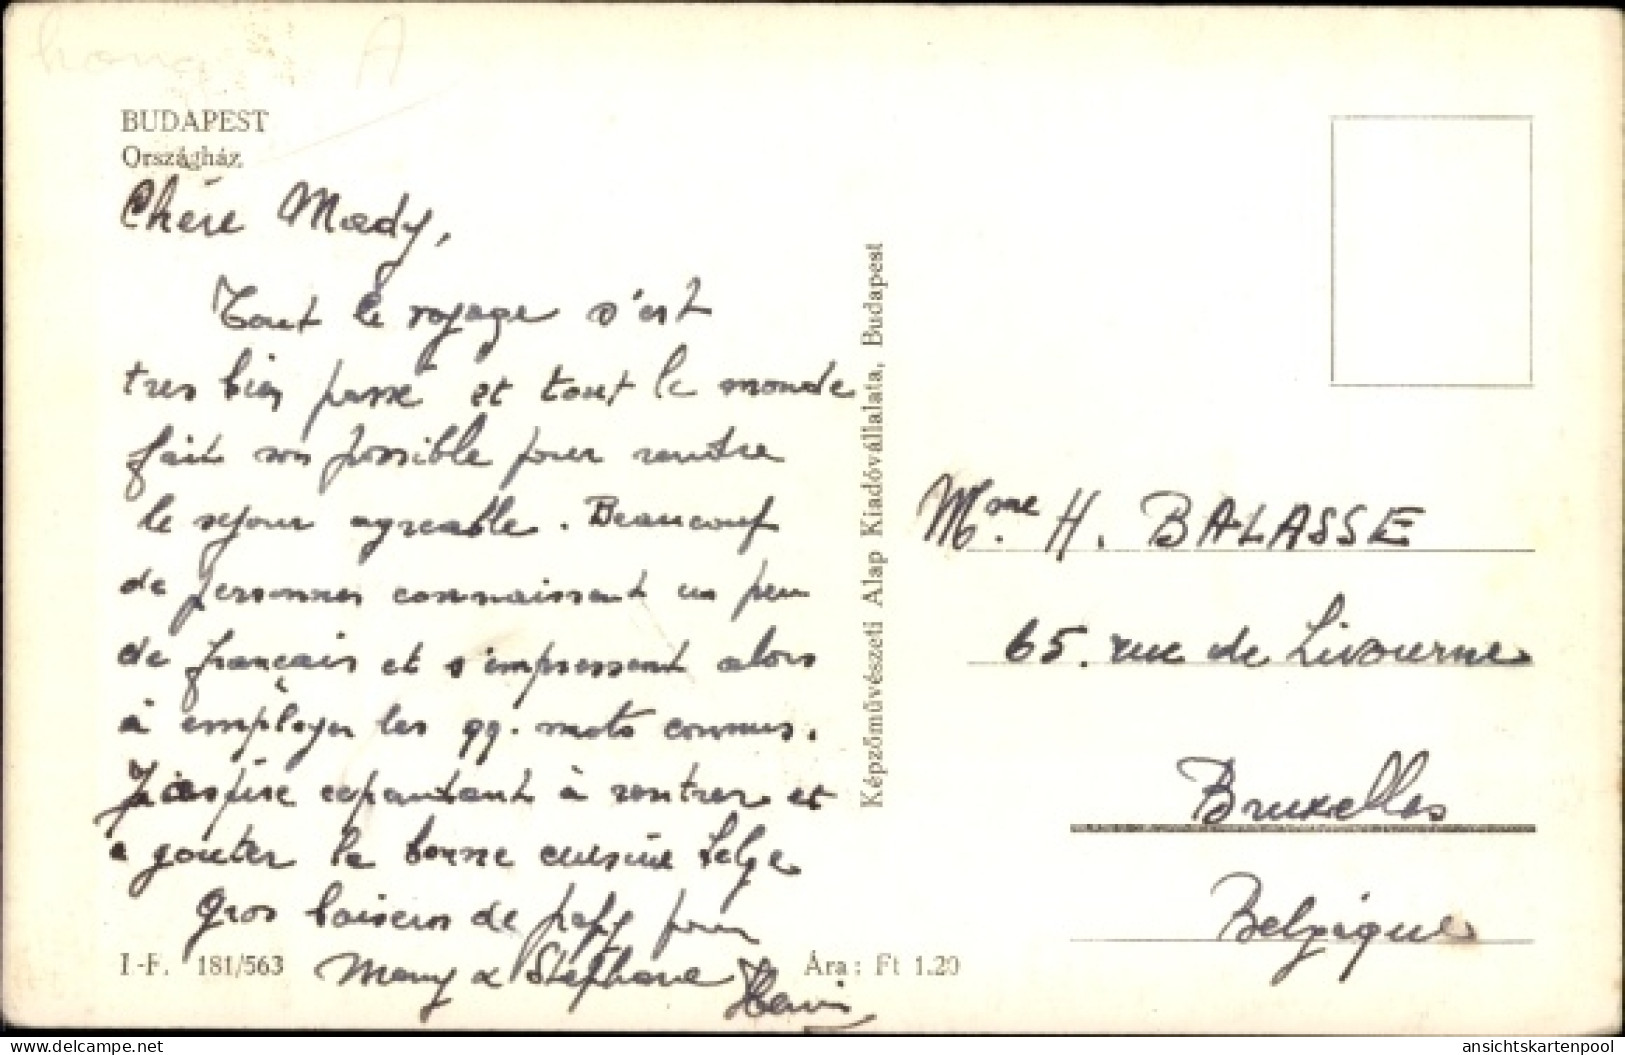 BUDAPEST
Országház
Chère Mady,
Tout le voyage s'est
tres bien passé et tout le monde
fait son possible pour rendre
le sejour agreable. Beaucoup
de personnes connaissent un peu
de français et s'empressent alors
à employer les qq. mots connus.
J'aspire cependant à rentrer et
à gouter la bonne cuisine belge
Gros baisers de papy pour
Mamy & Stephane Henri
I-F. 181/563
Ára: Ft 1.20
Képzőművészeti Alap Kiadóvállalata, Budapest
Mme. H. BALASSE
65. rue de Livourne
Bruxelles
Belgique
ansichtskartenpool